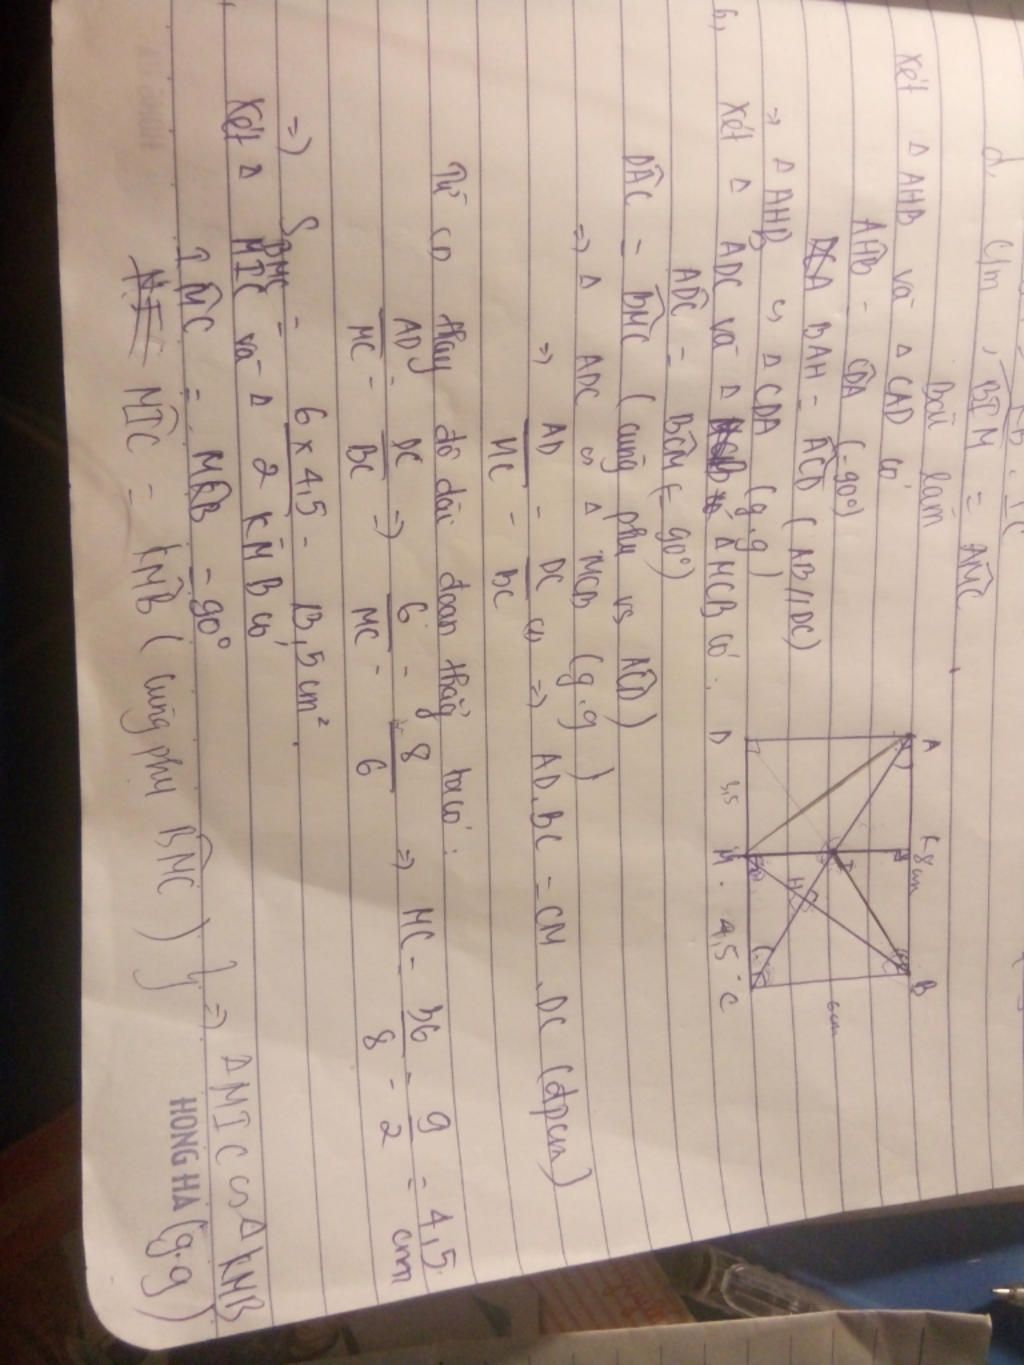 d, C/m, BIM = AMC
Bài làm
Xét Δ AHB và Δ CAD có
AHB = CDA (=90°)
BAH = ACD (AB//DC)
=> Δ AHB ∽ Δ CDA (g.g)
b,
Xét Δ ADC và Δ MCB có:
ADC = BCM (= 90°)
DAC = BMC (cùng phụ vs ACD)
=> Δ ADC ∽ Δ MCB (g.g)
=> AD/MC = DC/BC => AD.BC = CM.DC (đpcm)
Từ CD thay độ dài đoạn thẳng ta có:
AD/MC = DC/BC => 6/MC = 8/6 => MC = 36/8 = 9/2 = 4,5 cm
=> S BMC = 6 x 4,5 = 13,5 cm²
Xét Δ MIC và Δ KMB có
IMC = MKB = 90°
MIC = KMB (cùng phụ BMC) } => Δ MIC ∽ Δ KMB (g.g)
HONG HA
A
K
8cm
B
I
H
6cm
D
3,5
M
4,5
C